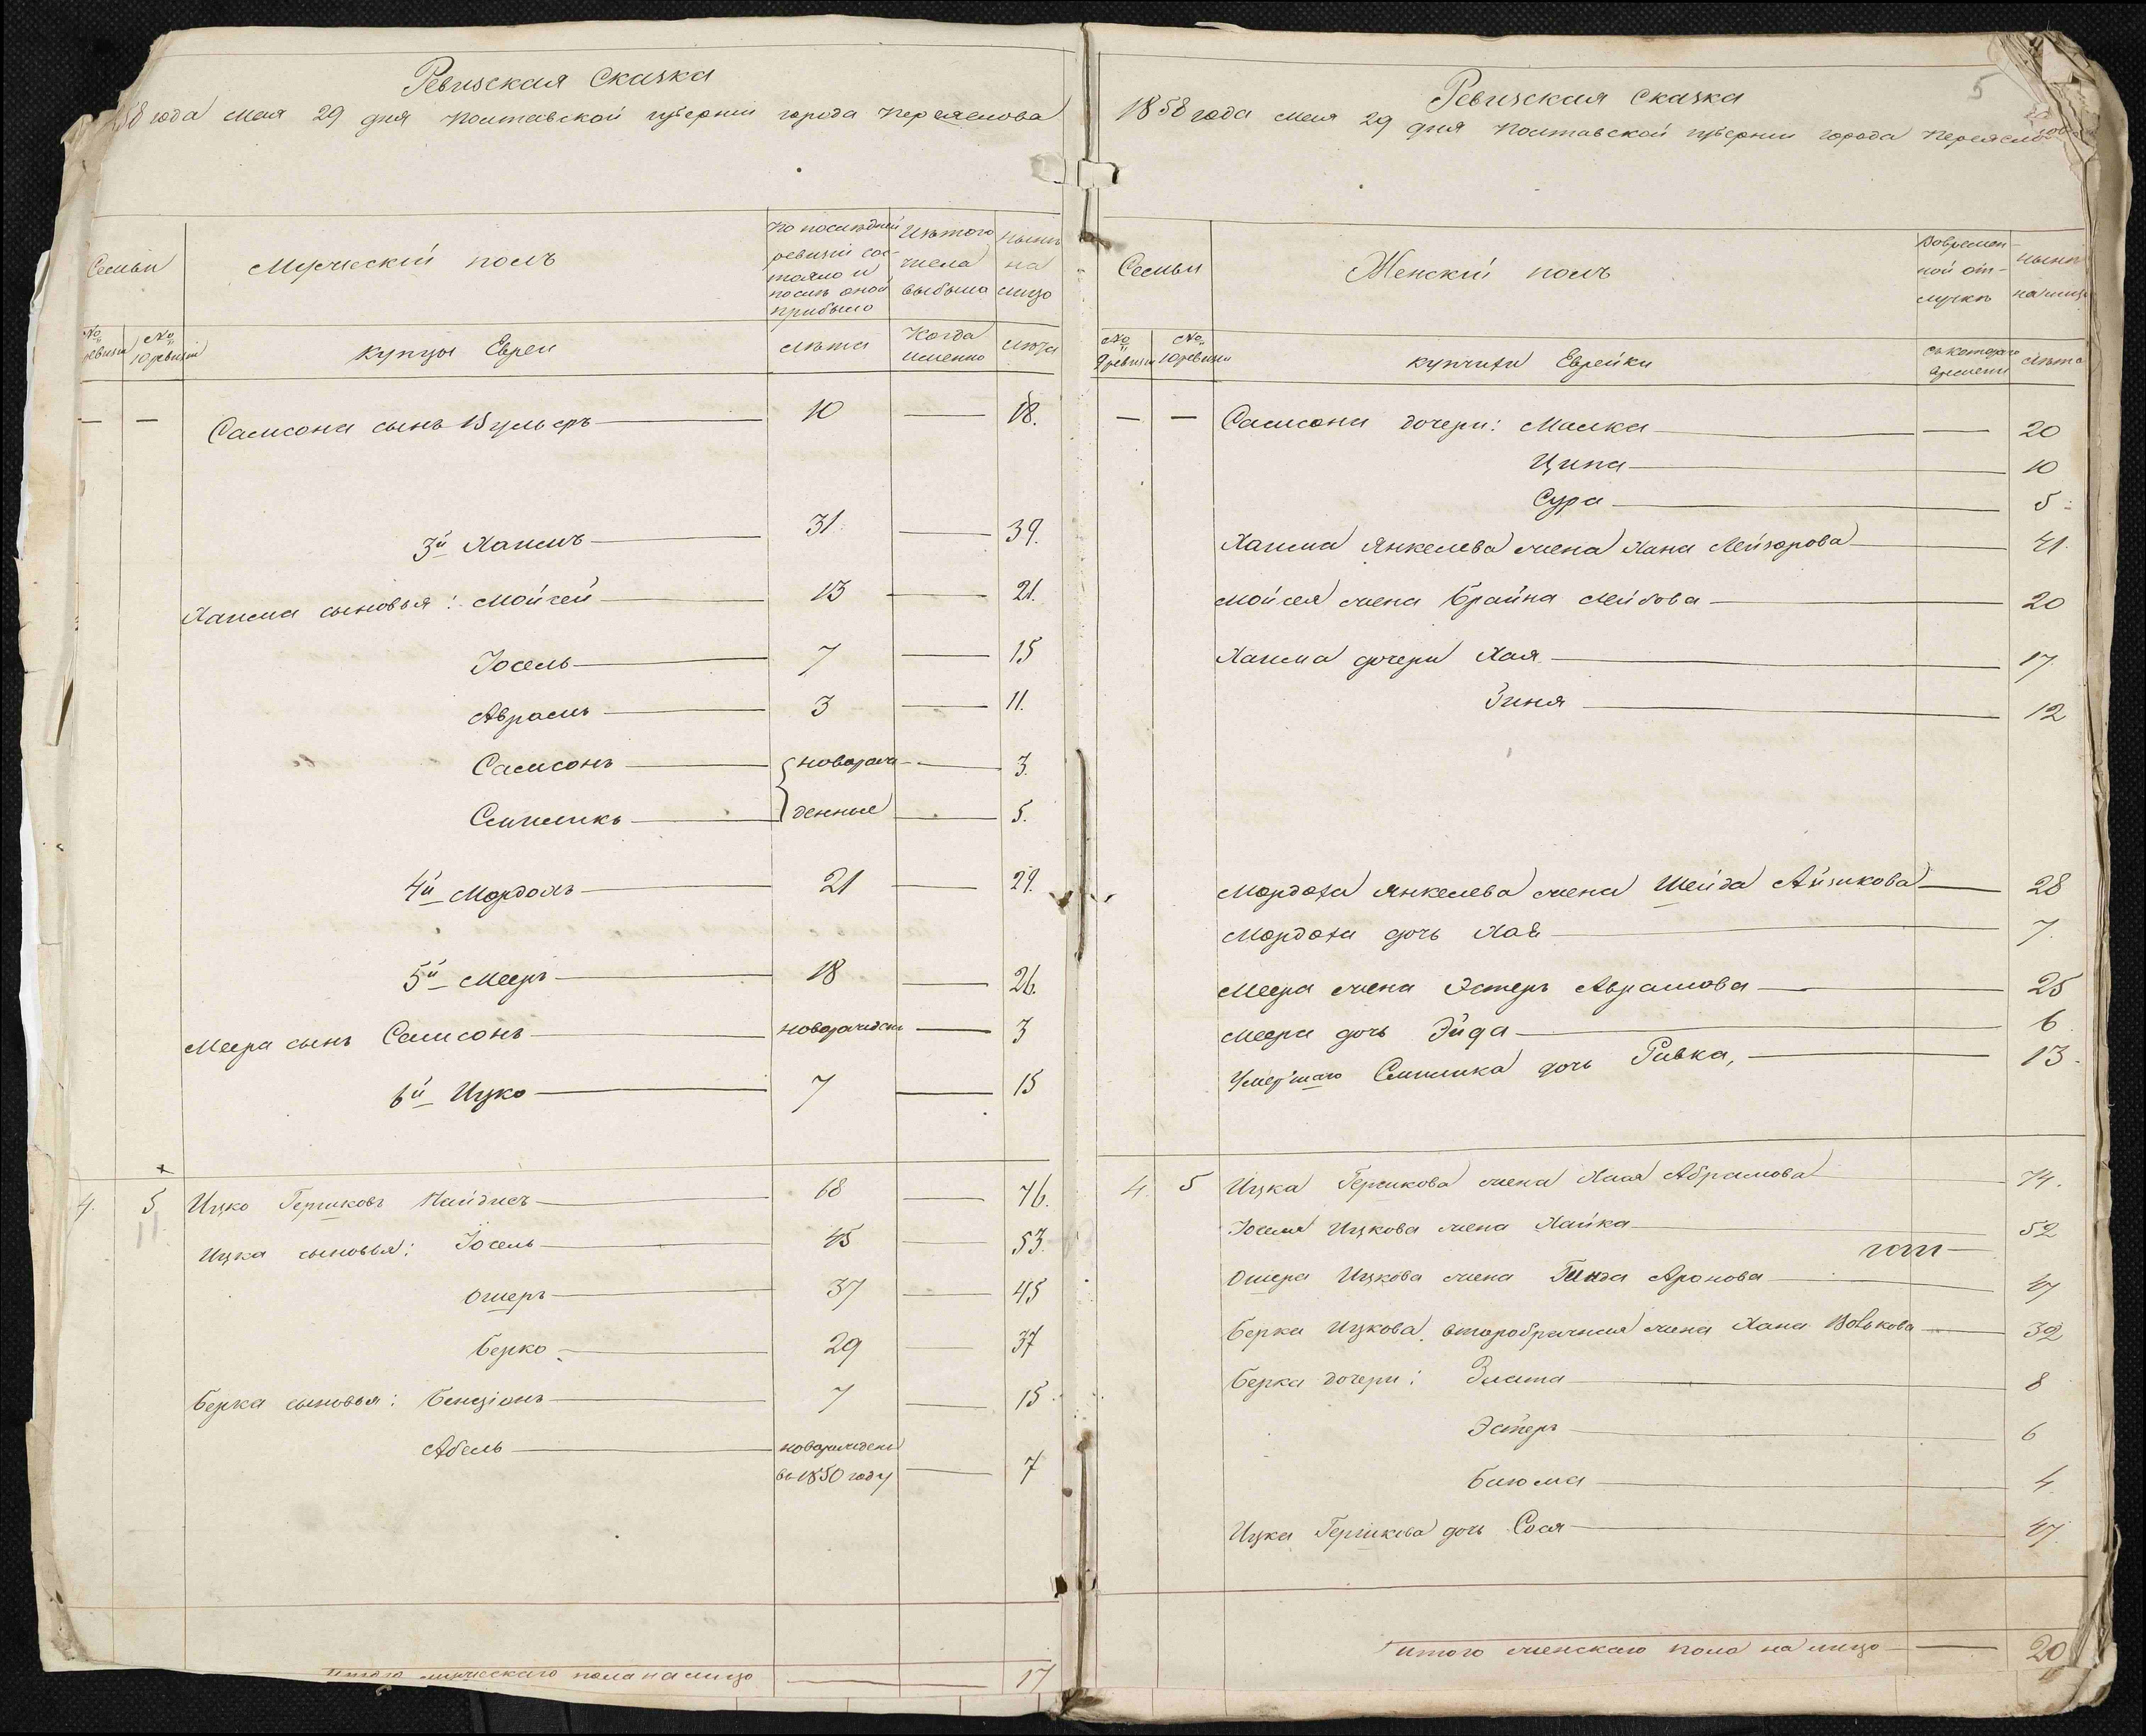 Ревизская Сказка
58 года мая 29 дня Полтавской губернии города Переяслова
Семьи
Мужескій полъ
По последней ревизіи состояло и послѣ оной прибыло
Изъ того числа выбыло
Нынѣ на лицо
№ ревизіи
№ 10 ревизіи
купцы Евреи
лѣта
Когда именно
лѣта
— — Самсона сынъ Вульфъ — 10 — 18.
3й Хаимъ — 31. — 39.
Хаима сыновья: Мойсей — 13 — 21.
Іосель — 7 — 15
Абрамъ — 3 — 11.
Самсонъ — новорож- — 3.
Симшикъ — денные — 5.
4й Мордохъ — 21 — 29.
5й Мееръ — 18 — 26.
Меера сынъ Самсонъ — новорожден — 3
6й Ицко — 7 — 15
4. 5 Ицко Гершковъ Найдисъ — 68 — 76.
11
Ицка сыновья: Іосель — 45 — 53.
Ошеръ — 37 — 45
Берко — 29 — 37
Берка сыновья: Бенціонъ — 7 — 15.
Абель — новорожден въ 1850 году — 7
итого мужескаго пола на лицо — 17
5
Ревизская Сказка
1858 года мая 29 дня Полтавской губерніи города Переяслова
Семьи
Женскій полъ
Во временной отлучкѣ
Нынѣ на лицо
№ 9 ревизіи
№ 10 ревизіи
купчихи Еврейки
съ котораго времени
лѣта
— — Самсона дочери: Малка — — 20
Ципа — 10
Сура — 5
Хаима Янкелева жена Хана Лейзорова — 41.
Мойсея жена Брайна Лейбова — 20
Хаима дочери Хая — 17.
Зиня — 12
Мордоха Янкелева жена Шейда Айзикова — 28
Мордоха дочь Хая — 7.
Меера жена Эстеръ Абрамова — 25
Меера дочь Эйда — 6
Умершаго Симшика дочь Ривка, — 13.
4. 5 Ицка Гершкова жена Хая Абрамова — 74.
Іоселя Ицкова жена Хайка — 52
Ошера Ицкова жена Гинда Аронова — 47
Берка Ицкова второбрачная жена Хана Вовкова — 32
Берка дочери: Злата — 8
Эстеръ — 6
Блюма — 4
Ицка Гершкова дочь Сося — 47.
итого женскаго пола на лицо — 20